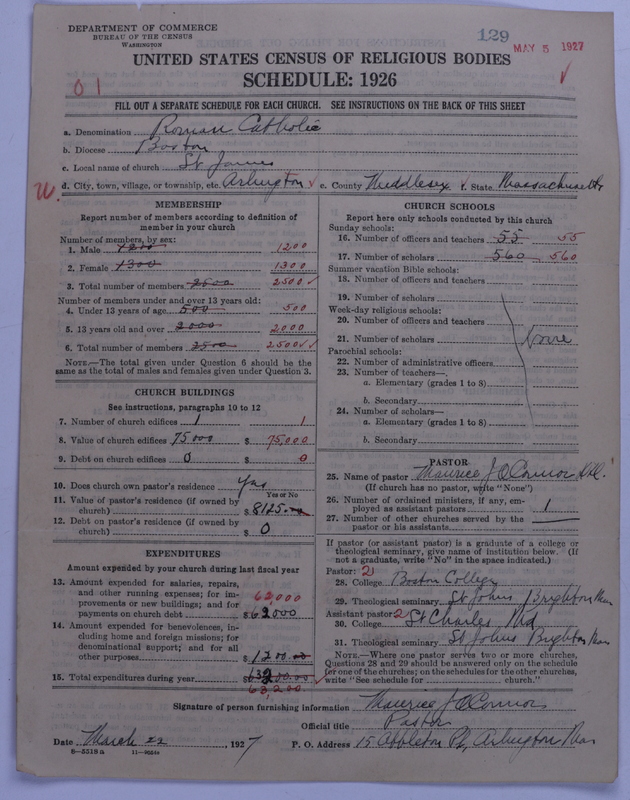 DEPARTMENT OF COMMERCE
BUREAU OF THE CENSUS
WASHINGTON
129
MAY 5 1927
UNITED STATES CENSUS OF RELIGIOUS BODIES
SCHEDULE: 1926
01
FILL OUT A SEPARATE SCHEDULE FOR EACH CHURCH. SEE INSTRUCTIONS ON THE BACK OF THIS SHEET
a. Denomination Roman Catholic
b. Diocese Boston
c. Local name of church St James
d. City, town, village, or township, etc. Arlington e. County Middlesex f. State Massachusetts
MEMBERSHIP
Report number of members according to definition of
member in your church
Number of members, by sex:
1. Male 1200 1200
2. Female 1300 1300
3. Total number of members 2500 2500
Number of members under and over 13 years old:
4. Under 13 years of age 500 500
5. 13 years old and over 2000 2000
6. Total number of members 2500 2500
NOTE.—The total given under Question 6 should be the
same as the total of males and females given under Question 3.
CHURCH BUILDINGS
See instructions, paragraphs 10 to 12
7. Number of church edifices 1 1
8. Value of church edifices 75000 $ 75,000
9. Debt on church edifices 0 $ 0
10. Does church own pastor's residence Yes
Yes or No
11. Value of pastor's residence (if owned by
church) $ 8125.00
12. Debt on pastor's residence (if owned by
church) $ 0
EXPENDITURES
Amount expended by your church during last fiscal year
13. Amount expended for salaries, repairs,
and other running expenses; for im-
provements or new buildings; and for
payments on church debt 62,000
$ 62000
14. Amount expended for benevolences, in-
cluding home and foreign missions; for
denominational support; and for all
other purposes $ 1200.00
15. Total expenditures during year $ 63200.00
63,200
CHURCH SCHOOLS
Report here only schools conducted by this church
Sunday schools:
16. Number of officers and teachers 55 55
17. Number of scholars 560 560
Summer vacation Bible schools:
18. Number of officers and teachers
19. Number of scholars
Week-day religious schools:
20. Number of officers and teachers
21. Number of scholars None
Parochial schools:
22. Number of administrative officers
23. Number of teachers—
a. Elementary (grades 1 to 8)
b. Secondary
24. Number of scholars—
a. Elementary (grades 1 to 8)
b. Secondary
PASTOR
25. Name of pastor Maurice J O'Connor
(If church has no pastor, write "None")
26. Number of ordained ministers, if any, em-
ployed as assistant pastors 1
27. Number of other churches served by the
pastor or his assistants
If pastor (or assistant pastor) is a graduate of a college or
theological seminary, give name of institution below. (If
not a graduate, write "No" in the space indicated.)
Pastor: 2
28. College Boston College
29. Theological seminary St Johns Brighton Mass
Assistant pastor 2
30. College St Charles Md
31. Theological seminary St Johns Brighton Mass
NOTE.—Where one pastor serves two or more churches,
Questions 28 and 29 should be answered only on the schedule
for one of the churches; on the schedules for the other churches,
write "See schedule for church."
Signature of person furnishing information Maurice J O'Connor
Official title Pastor
Date March 22, 1927 P. O. Address 15 Appleton Pl, Arlington Mass